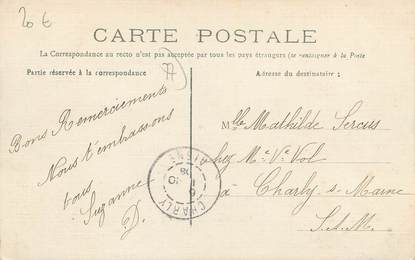 20 €
CARTE POSTALE
77
La Correspondance au recto n'est pas acceptée par tous les pays étrangers (se renseigner à la Poste
Partie réservée à la correspondance
Adresse du destinataire :
Bons Remerciements
Nous t'embrassons
tous
Suzanne
D.
Mlle Mathilde Sercus
chez Me Ve Vol
à Charly s. Marne
CHARLY
AISNE